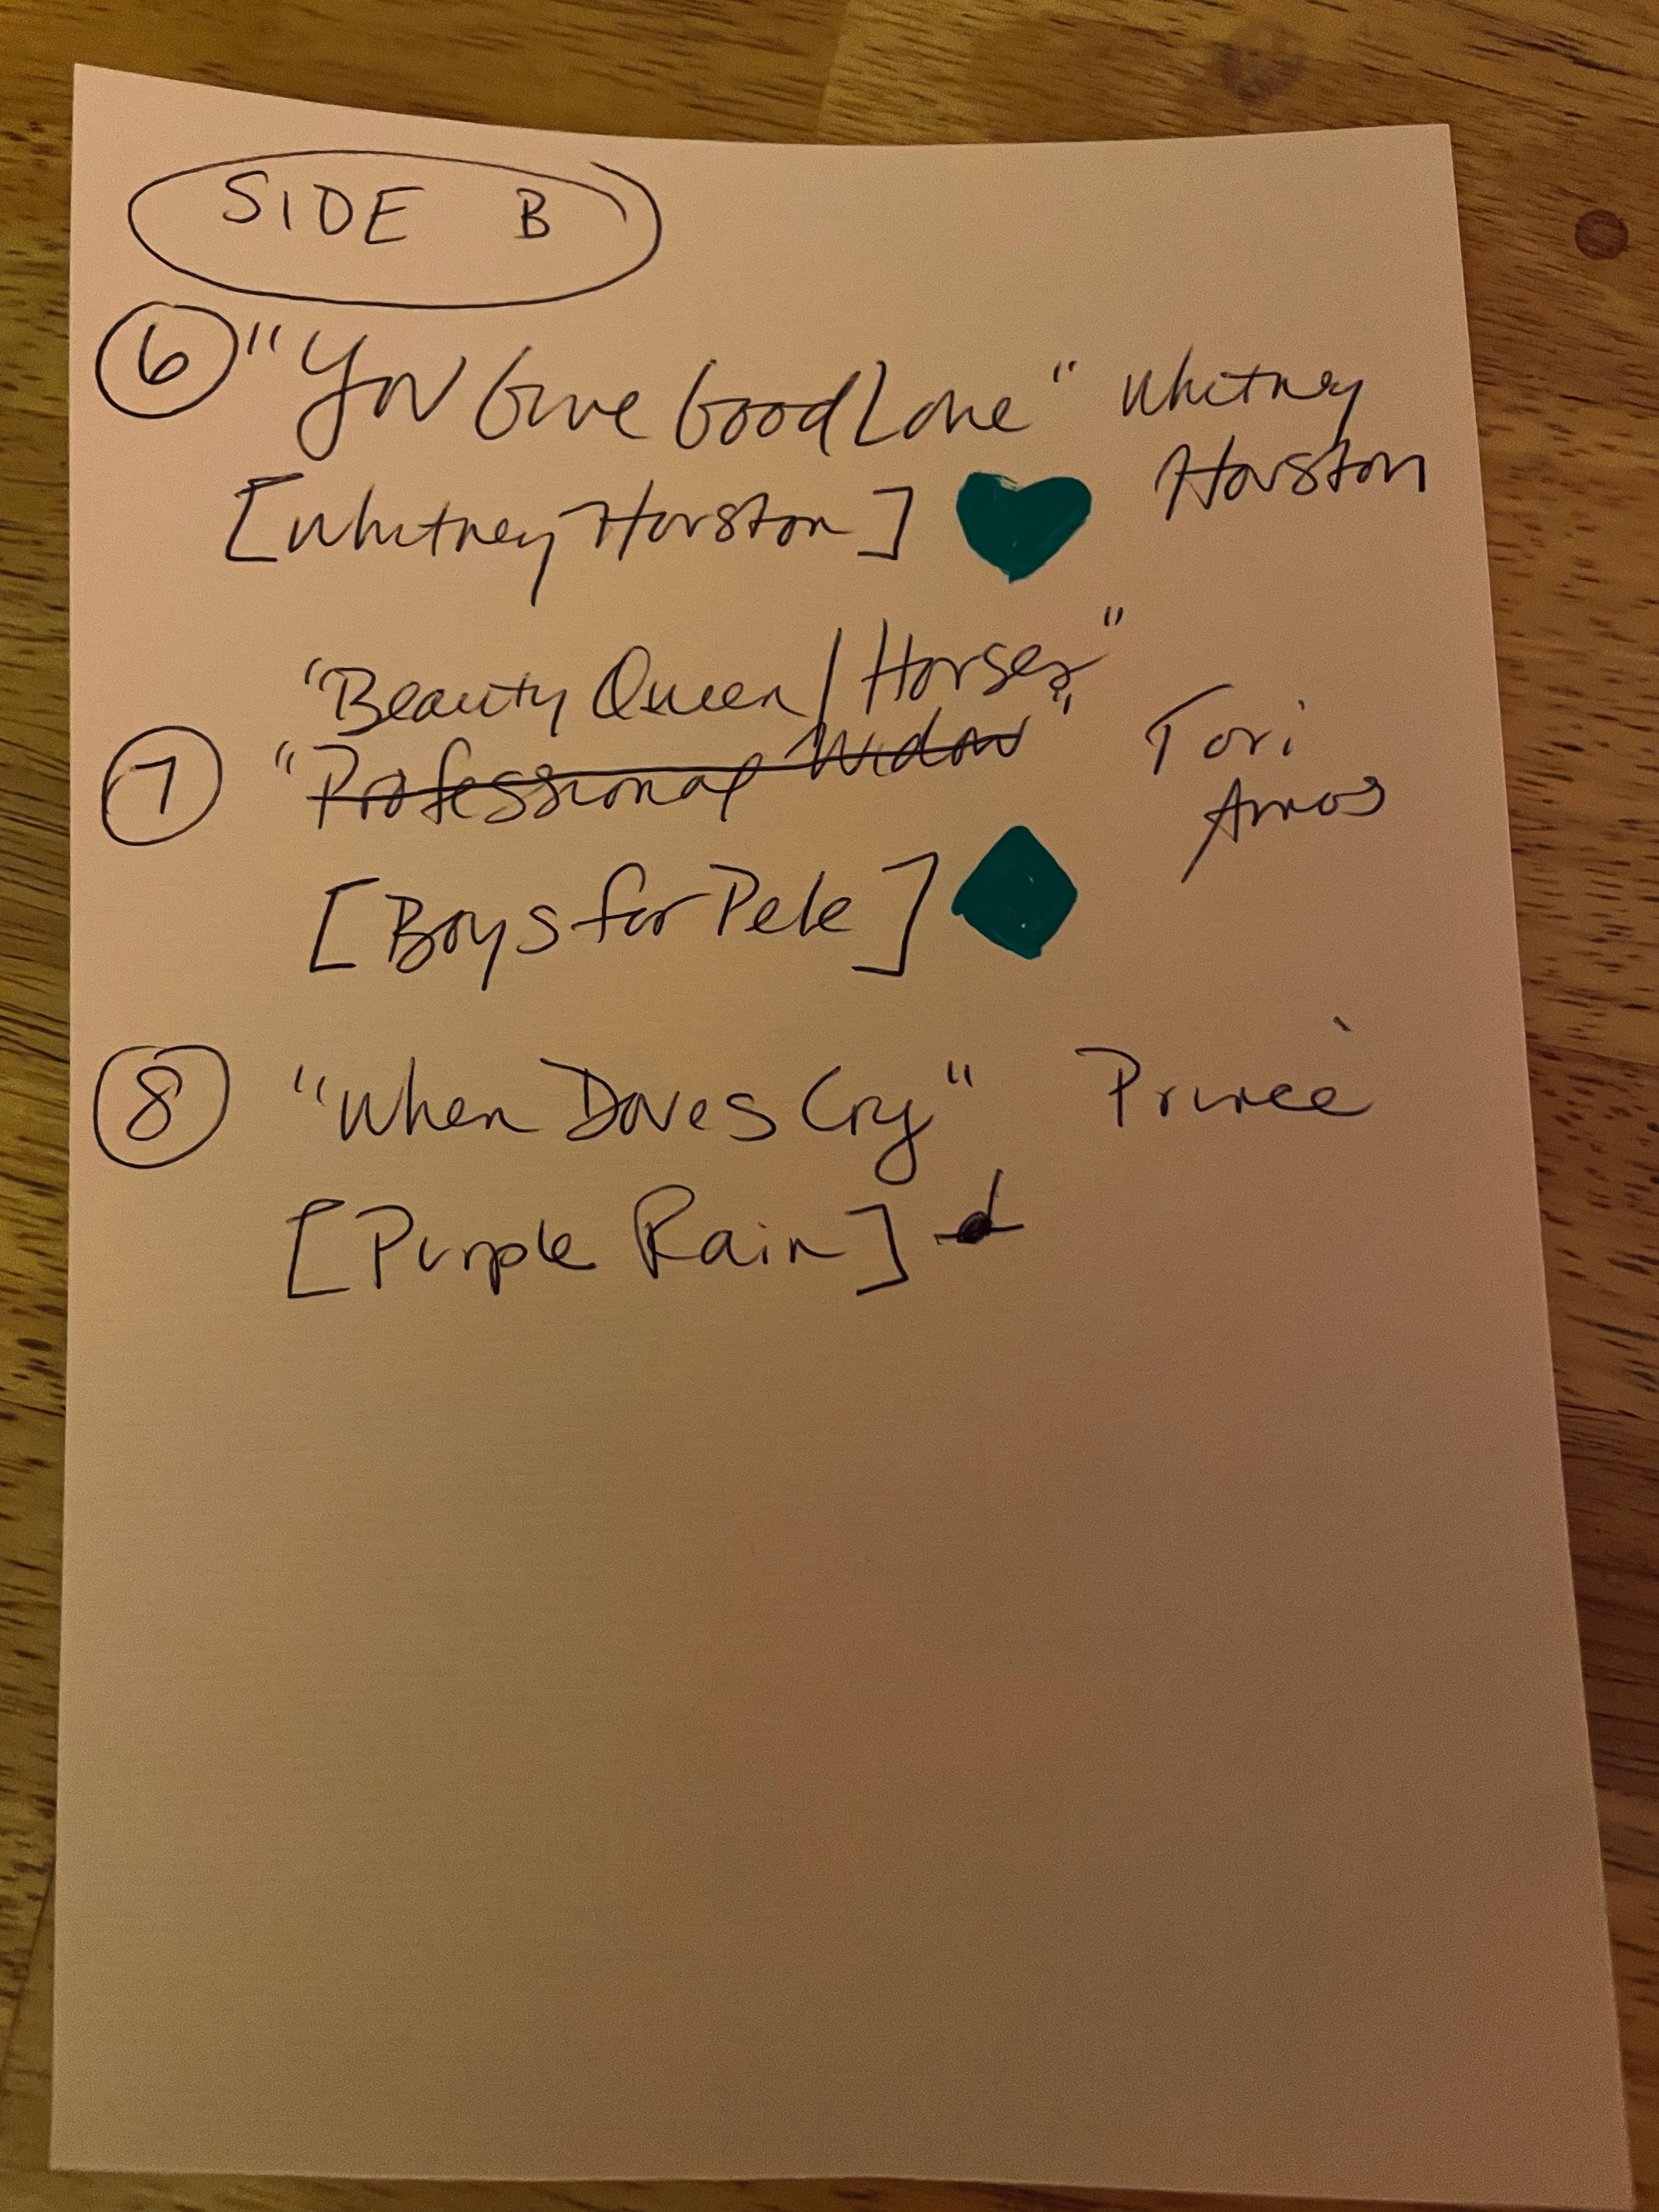 SIDE B
6 "You Give Good Love" Whitney Houston
[Whitney Houston]
"Beauty Queen/Horses"
7 "Professional Widow" Tori Amos
[Boys for Pele]
8 "When Doves Cry" Prince
[Purple Rain]